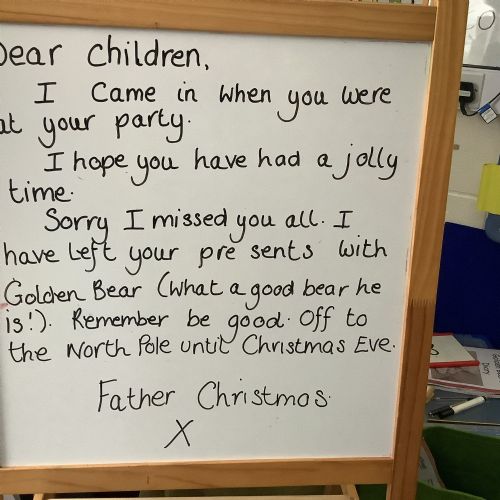 Dear Children,
I Came in when you were
at your party.
I hope you have had a jolly
time.
Sorry I missed you all. I
have left your pre sents with
Golden Bear (what a good bear he
is!). Remember be good. Off to
the North Pole until Christmas Eve.
Father Christmas
X